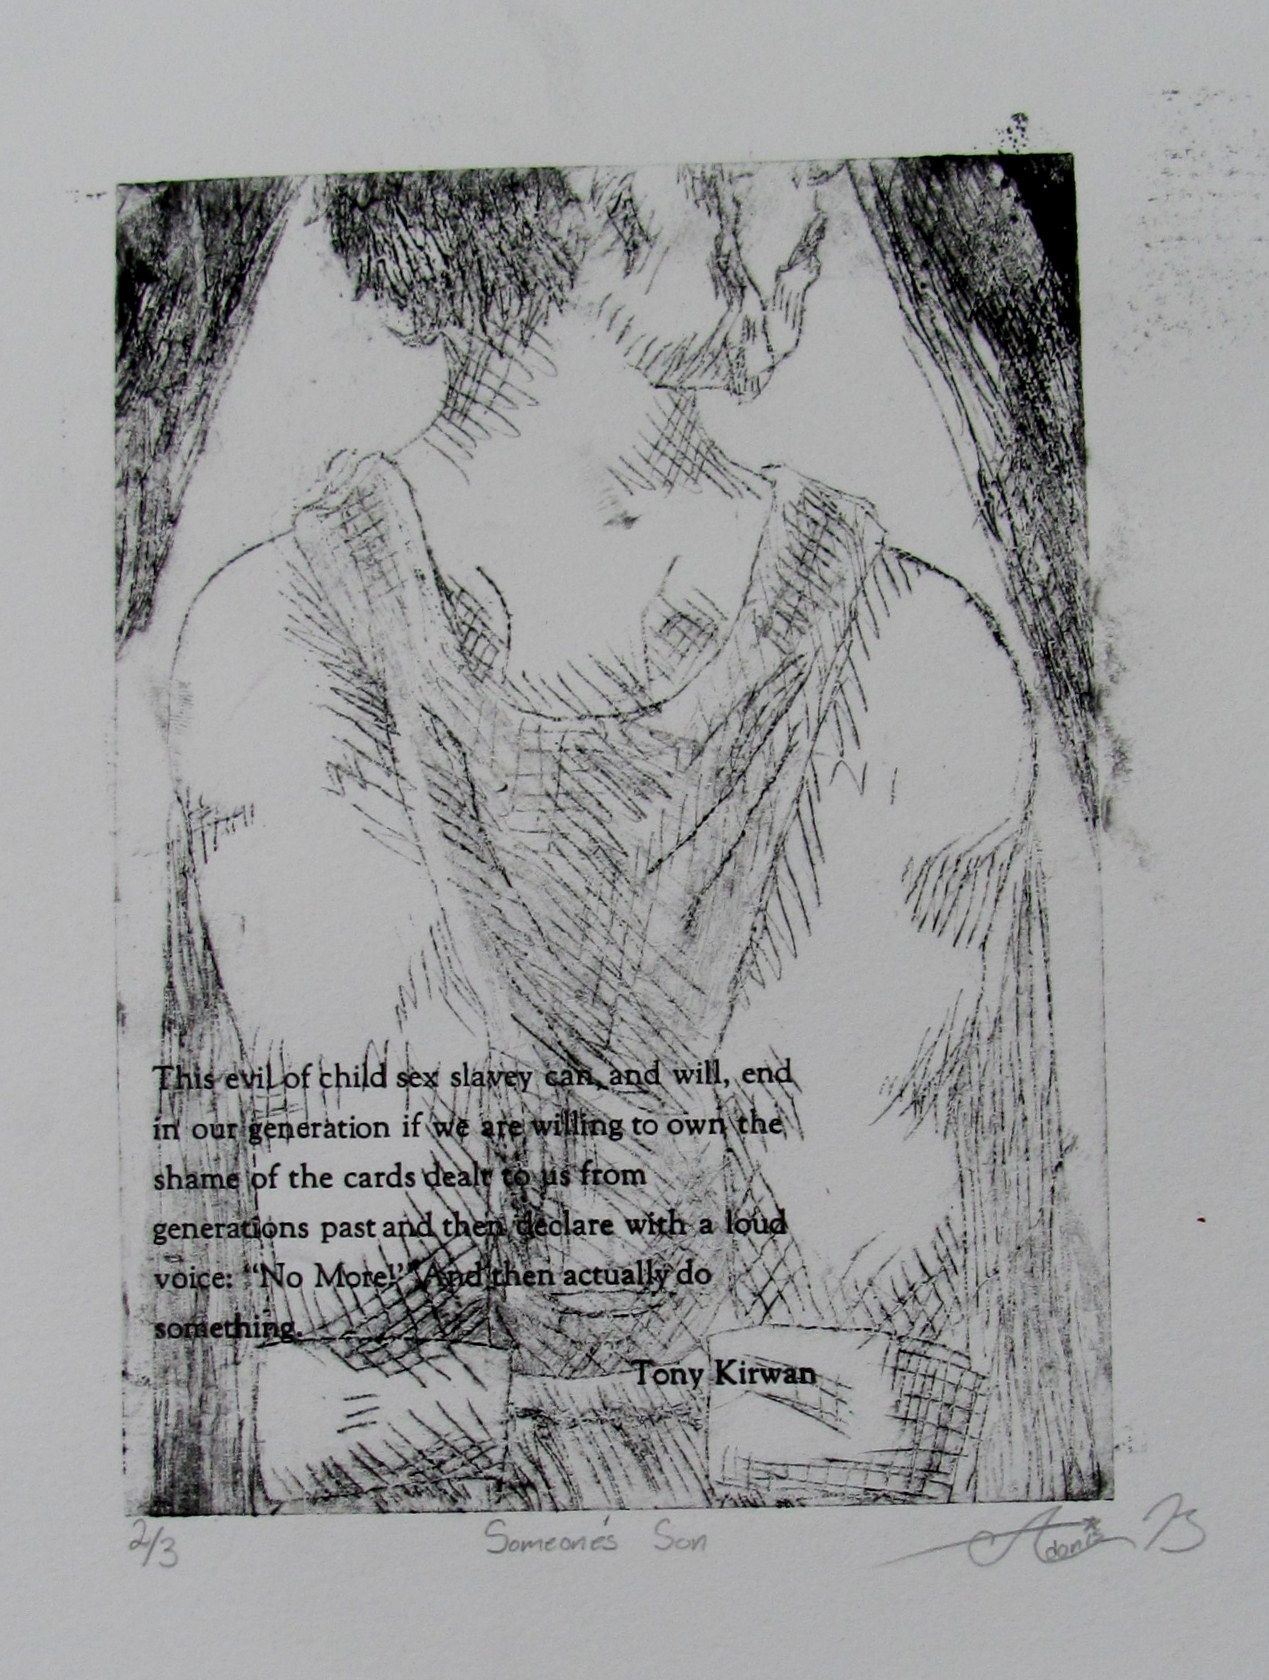 This evil of child sex slavey can, and will, end
in our generation if we are willing to own the
shame of the cards dealt to us from
generations past and then declare with a loud
voice: "No More!" And then actually do
something.
Tony Kirwan
2/3 Someone's Son Adonis 13